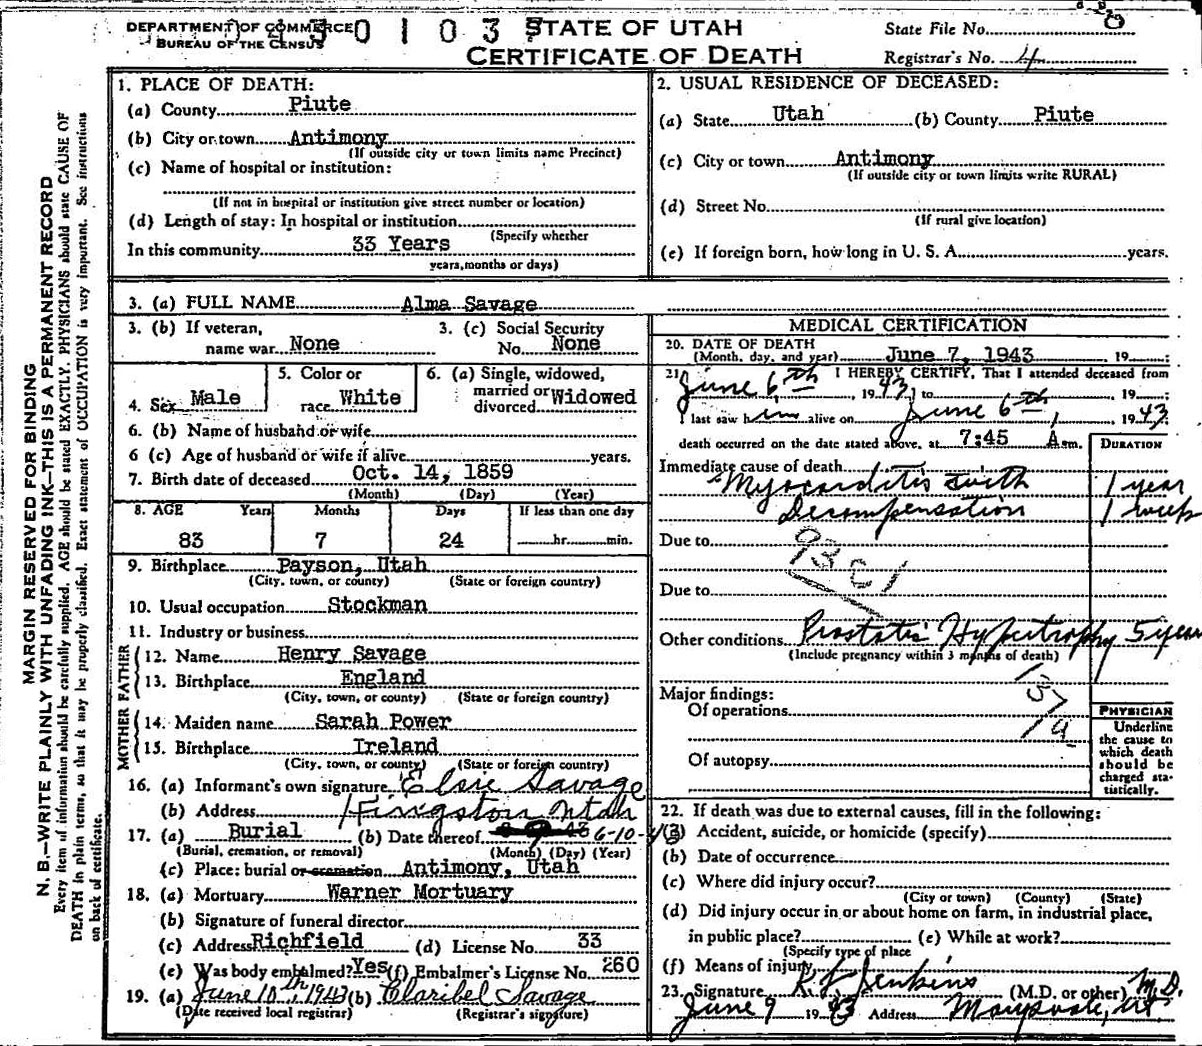 DEPARTMENT OF COMMERCE
BUREAU OF THE CENSUS
0 1 0 3
STATE OF UTAH
CERTIFICATE OF DEATH
State File No.
Registrar's No. 4
MARGIN RESERVED FOR BINDING
N. B.—WRITE PLAINLY WITH UNFADING INK—THIS IS A PERMANENT RECORD
Every item of information should be carefully supplied. AGE should be stated EXACTLY. PHYSICIANS should state CAUSE OF
DEATH in plain terms, so that it may be properly classified. Exact statement of OCCUPATION is very important. See instructions
on back of certificate.
1. PLACE OF DEATH:
(a) County Piute
(b) City or town Antimony
(If outside city or town limits name Precinct)
(c) Name of hospital or institution:
(If not in hospital or institution give street number or location)
(d) Length of stay: In hospital or institution
(Specify whether
In this community 33 Years
years, months or days)
2. USUAL RESIDENCE OF DECEASED:
(a) State Utah (b) County Piute
(c) City or town Antimony
(If outside city or town limits write RURAL)
(d) Street No.
(If rural give location)
(e) If foreign born, how long in U. S. A. years.
3. (a) FULL NAME Alma Savage
3. (b) If veteran,
name war None
3. (c) Social Security
No. None
4. Sex Male
5. Color or
race White
6. (a) Single, widowed,
married or
divorced Widowed
6. (b) Name of husband or wife
6 (c) Age of husband or wife if alive years.
7. Birth date of deceased Oct. 14, 1859
(Month) (Day) (Year)
8. AGE Years Months Days If less than one day
83 7 24 hr. min.
9. Birthplace Payson, Utah
(City, town, or county) (State or foreign country)
10. Usual occupation Stockman
11. Industry or business
FATHER
12. Name Henry Savage
13. Birthplace England
(City, town, or county) (State or foreign country)
MOTHER
14. Maiden name Sarah Power
15. Birthplace Ireland
(City, town, or county) (State or foreign country)
16. (a) Informant's own signature Elsie Savage
(b) Address Kingston Utah
17. (a) Burial (b) Date thereof 6-10-43
(Burial, cremation, or removal) (Month) (Day) (Year)
(c) Place: burial or cremation Antimony, Utah
18. (a) Mortuary Warner Mortuary
(b) Signature of funeral director
(c) Address Richfield (d) License No. 33
(e) Was body embalmed? Yes (f) Embalmer's License No. 260
19. (a) June 10th, 1943 (b) Claribel Savage
(Date received local registrar) (Registrar's signature)
MEDICAL CERTIFICATION
20. DATE OF DEATH
(Month, day, and year) June 7, 1943 , 19 ;
21. I HEREBY CERTIFY, That I attended deceased from
June 6th , 1943 , to , 19 ;
I last saw him alive on June 6th , 1943
death occurred on the date stated above, at 7:45 A m.
DURATION
Immediate cause of death
Myocarditis with 1 year
Decompensation 1 week
Due to
93 C1
Due to
Other conditions Prostatic Hypertrophy 5 year
(Include pregnancy within 3 months of death)
137a
Major findings:
Of operations
Of autopsy
PHYSICIAN
Underline
the cause to
which death
should be
charged sta-
tistically.
22. If death was due to external causes, fill in the following:
(a) Accident, suicide, or homicide (specify)
(b) Date of occurrence
(c) Where did injury occur?
(City or town) (County) (State)
(d) Did injury occur in or about home on farm, in industrial place,
in public place? (e) While at work?
(Specify type of place
(f) Means of injury
23. Signature Jenkins (M.D. or other) M.D.
June 9 1943 Address Marysvale, Ut.